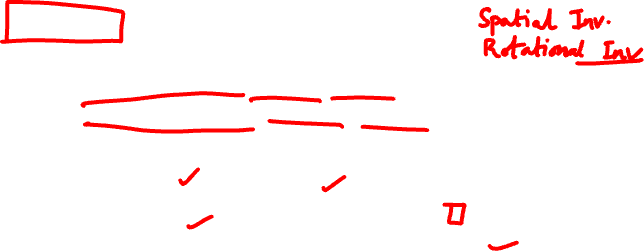 Spatial Inv.
Rotational Inv